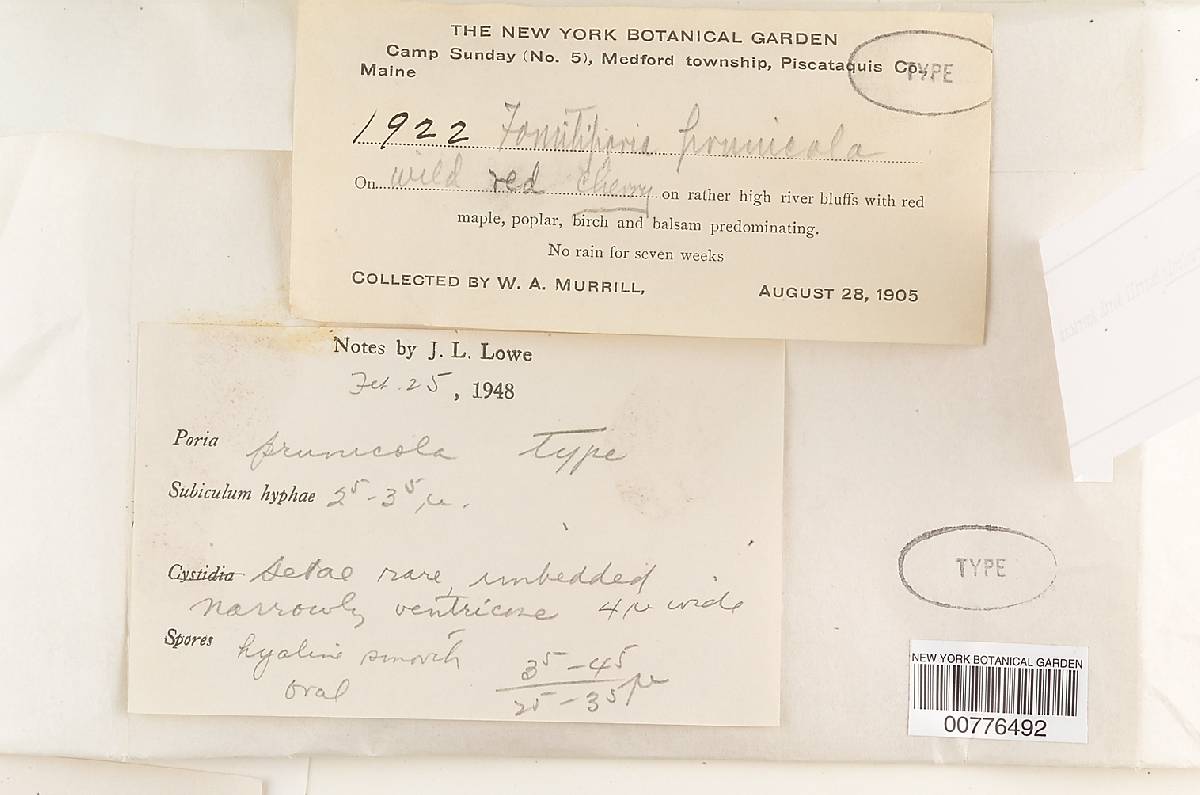 THE NEW YORK BOTANICAL GARDEN
Camp Sunday (No. 5), Medford township, Piscataquis Co.,
Maine
TYPE
1922 Fomitiporia prunicola
On wild red cherry on rather high river bluffs with red
maple, poplar, birch and balsam predominating.
No rain for seven weeks
COLLECTED BY W. A. MURRILL, AUGUST 28, 1905
Notes by J. L. Lowe
Feb. 25, 1948
Poria prunicola Type
Subiculum hyphae 2⁵-3⁵ µ.
Cystidia Setae rare, imbedded
narrowly ventricose 4µ wide
Spores hyaline smooth
oval
3⁵-4⁵
2⁵-3⁵ µ
TYPE
NEW YORK BOTANICAL GARDEN
00776492